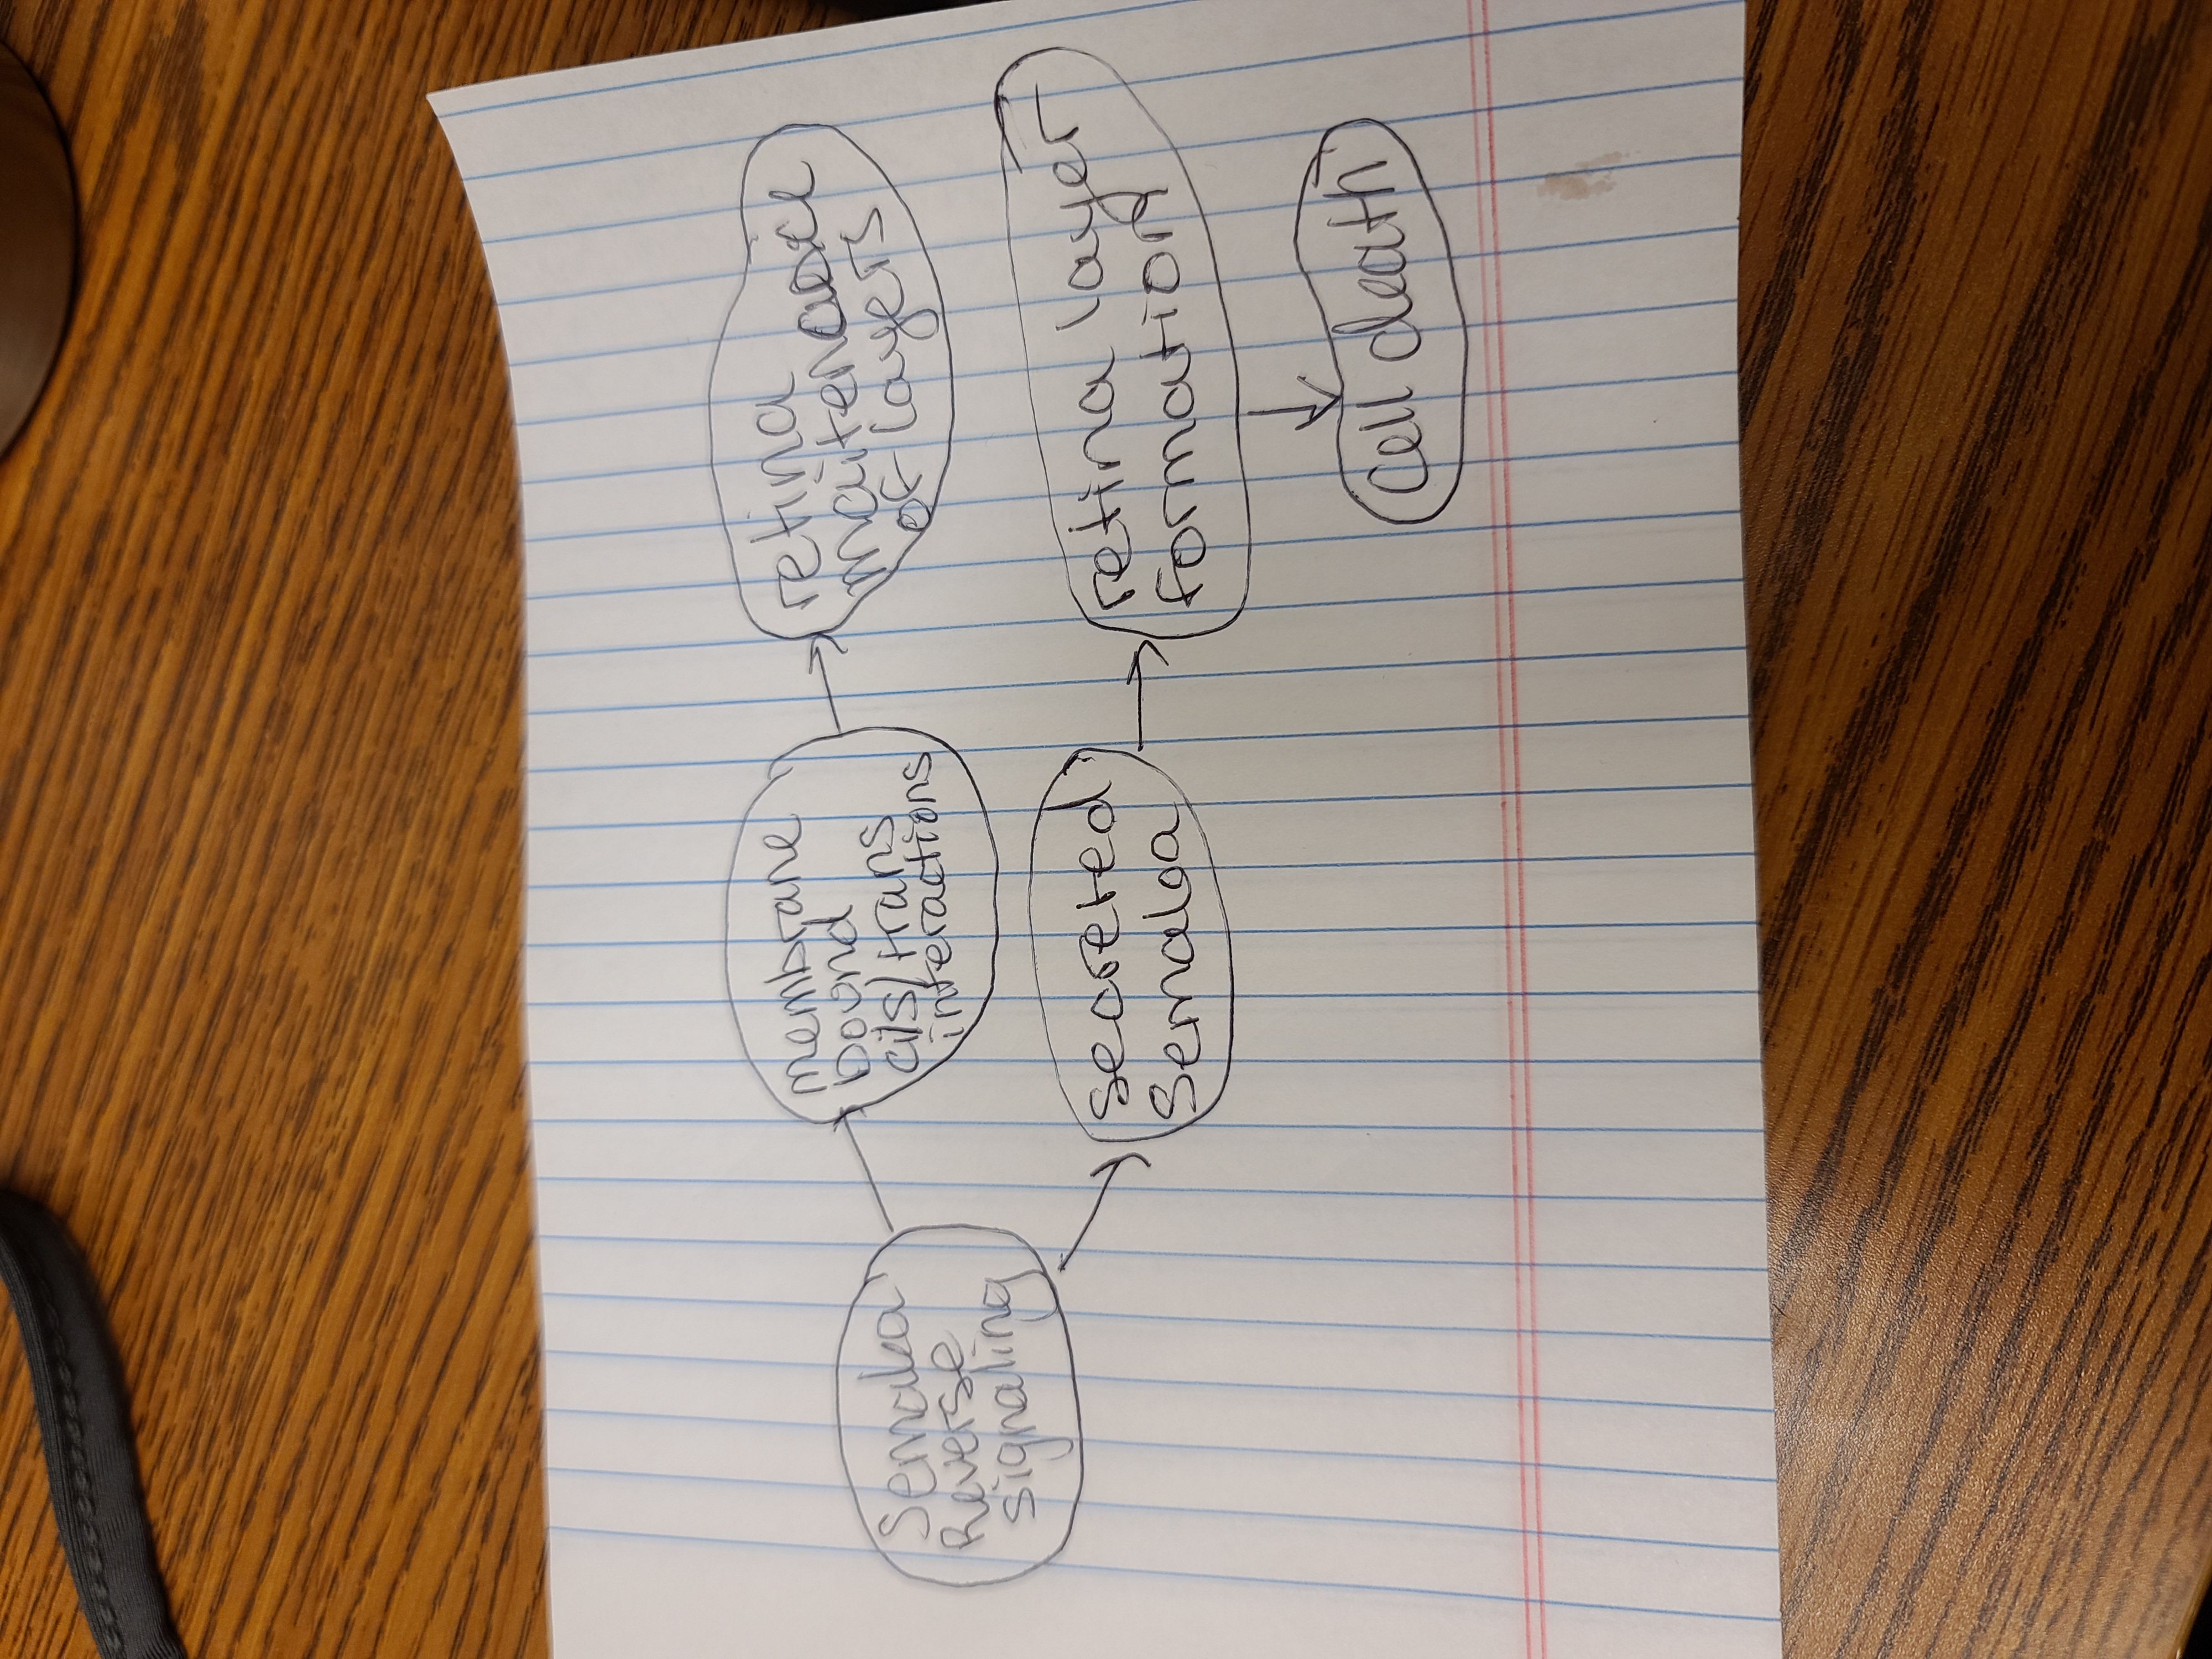 Sema6a
Reverse
signaling
membrane
bound
cis/trans
interactions
retina
maitenance
of layers
secreted
Sema6a
retina layer
formation
cell death